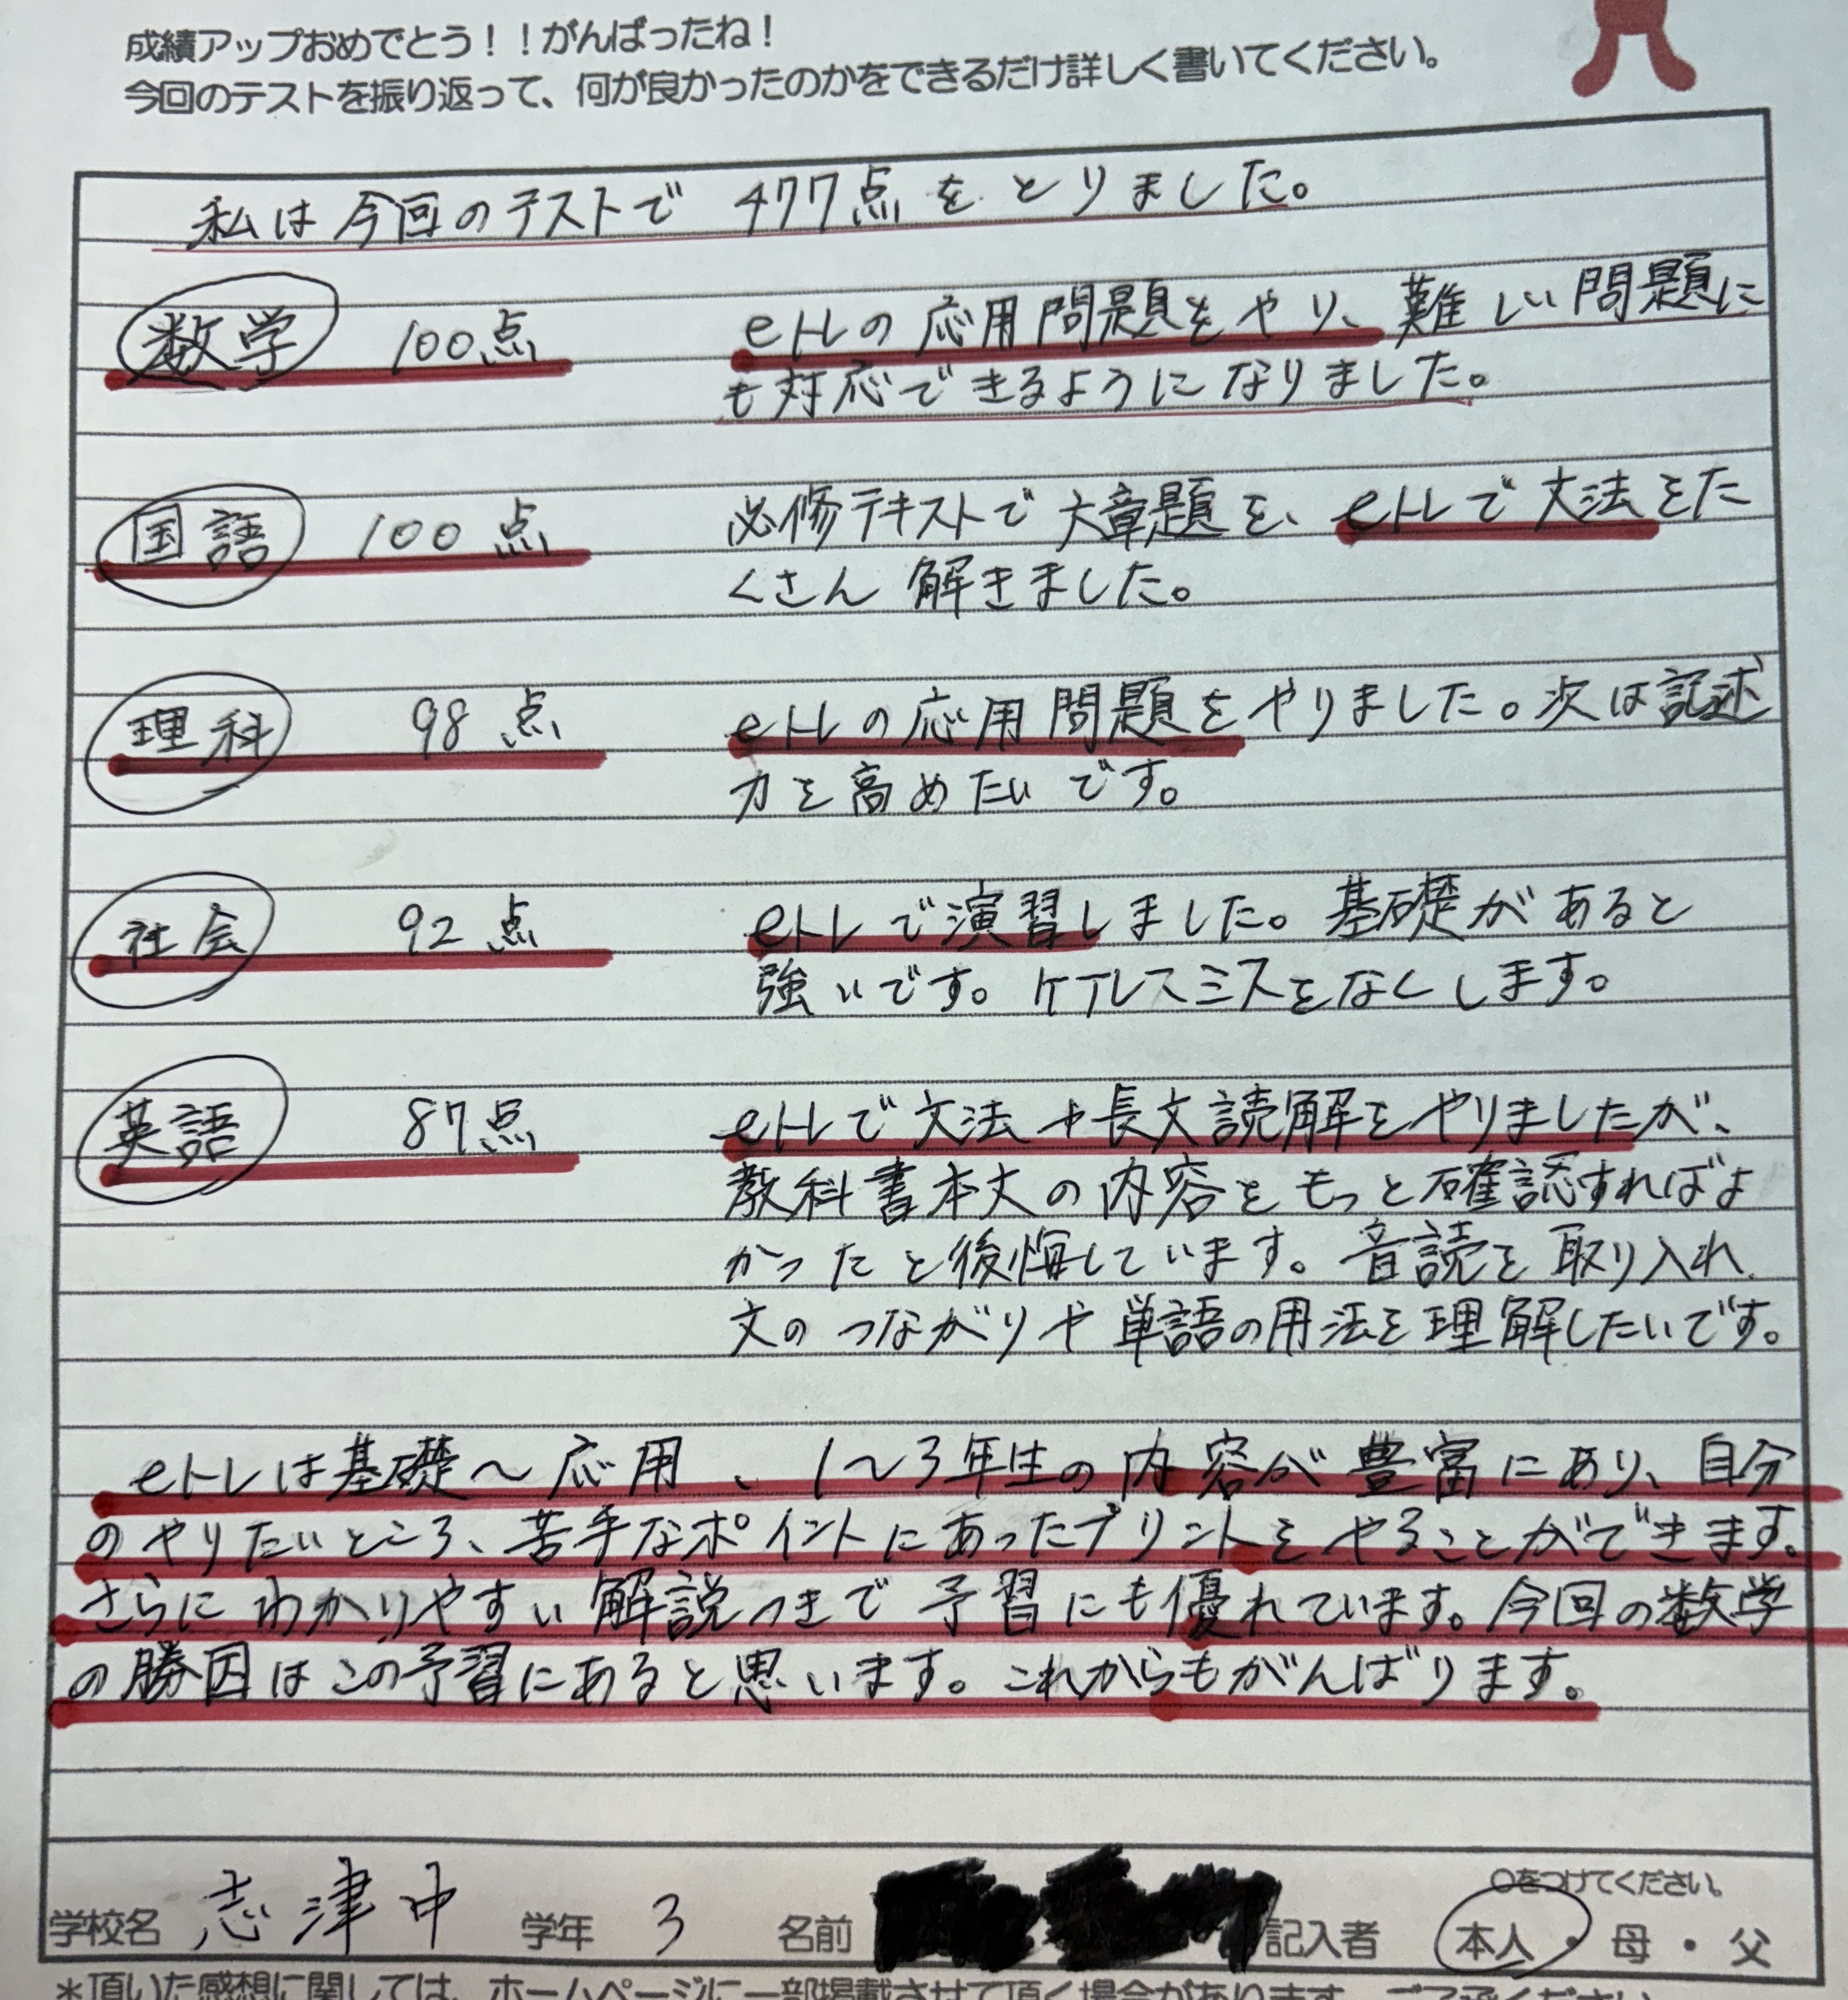 成績アップおめでとう！！がんばったね！
今回のテストを振り返って、何が良かったのかをできるだけ詳しく書いてください。
私は今回のテストで 477点をとりました。
数学 100点 eトレの応用問題をやり、難しい問題に
も対応できるようになりました。
国語 100点 必修テキストで大章題を、eトレで文法をた
くさん解きました。
理科 98点 eトレの応用問題をやりました。次は記述
力を高めたいです。
社会 92点 eトレで演習しました。基礎があると
強いです。ケアレスミスをなくします。
英語 87点 eトレで文法や長文読解をやりましたが、
教科書本文の内容をもっと確認すればよ
かったと後悔しています。音読を取り入れ、
文のつながりや単語の用法を理解したいです。
eトレは基礎〜応用、1〜3年生の内容が豊富にあり、自分
のやりたいところ、苦手なポイントにあったプリントをやることができます。
さらにわかりやすい解説つきで予習にも優れています。今回の数学
の勝因はこの予習にあると思います。これからもがんばります。
○をつけてください。
学校名 志津中 学年 3 名前 記入者 本人・母・父
＊頂いた感想に関しては、ホームページに一部掲載させて頂く場合があります。ご了承ください